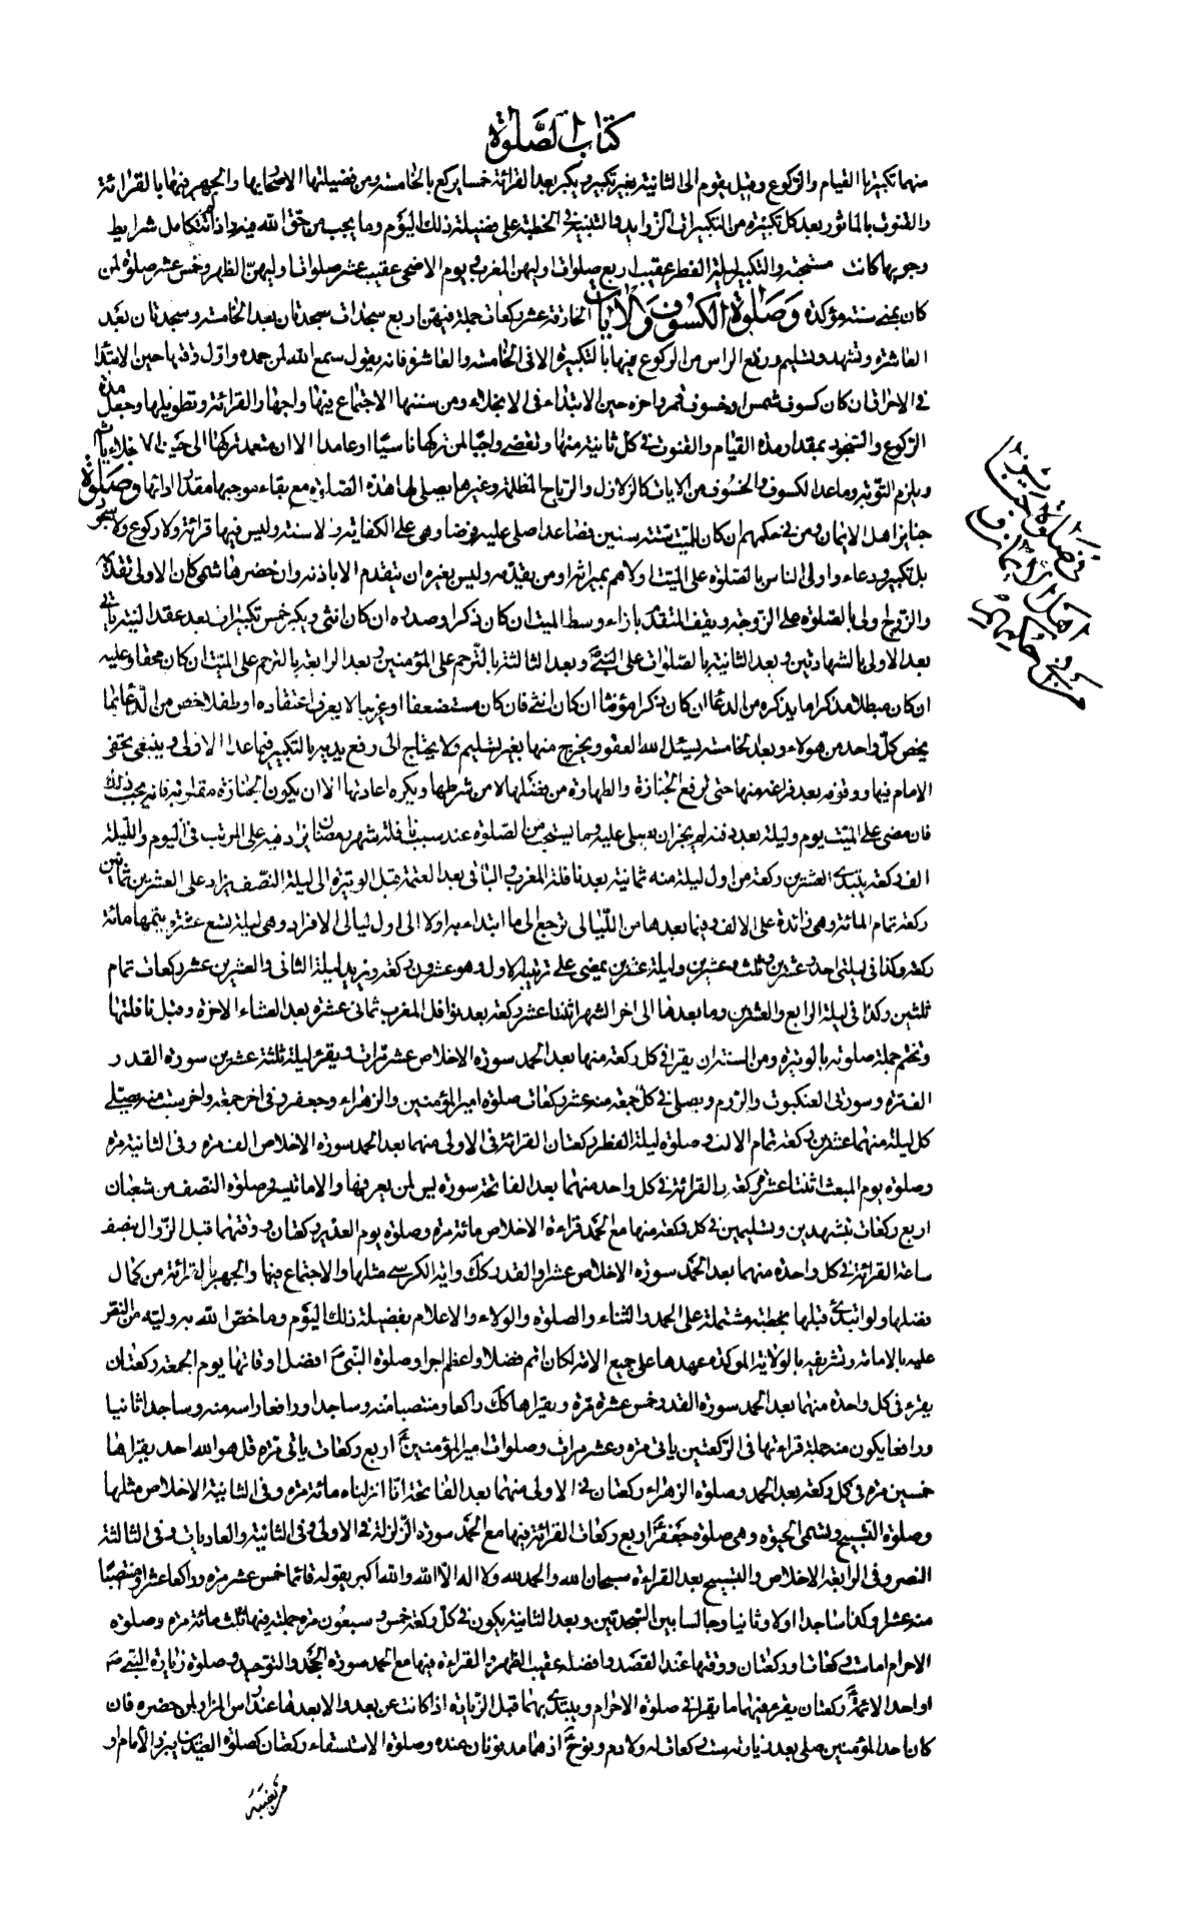 كتاب الصلوة
منهما تكبيرتا القيام والركوع وقيل يقوم الى الثانية بغير تكبير ويكبر بعد القرائة خمسا يركع بالخامسة ومن فضيلتها الاصحار بها والجهر فيها بالقرائة
والقنوت بالماثور بعد كل تكبيرة من التكبيرات الزوايد والتنبيه في الخطبة على فضيلة ذلك اليوم وما يجب من حق الله فيه واذا لم تتكامل شرايط
وجوبها كانت مستحبة والتكبير ليلة الفطر عقيب اربع صلوات اوليهن المغرب وفي يوم الاضحى عقيب عشر صلوات اوليهن الظهر وخمس عشر صلوة لمن
كان بمنى سنة مؤكدة وصلوة الكسوف والايات الخارقة عشر ركعات جملة فيهن اربع سجدات سجدتان بعد الخامسة وسجدتان بعد
العاشرة وتشهد وتسليم ورفع الراس من الركوع فيها بالتكبيرة الا في الخامسة والعاشرة فانه يقول سمع الله لمن حمده واول وقتها حين الابتدا
في الاحتراق ان كان كسوف شمس او خسوف قمر واخره حين الابتداء في الانجلاء ومن سننها الاجتماع فيها واجهار القرائة وتطويلها وجعل مدة
الركوع والسجود بمقدار مدة القيام والقنوت في كل ثانية منها وتقضى واجبا لمن تركها ناسيا او عامدا الا ان متعمد تركها الى حين الانجلاء ياثم
ويلزم التوبة وما عدا الكسوف والخسوف من الايات كالزلازل والرياح المظلمة وغيرها يصلى لها هذه الصلوة مع بقاء موجبها مقدار ادائها وصلوة
جنايز اهل الايمان ومن في حكمهم ان كان للميت ستة سنين فصاعدا صلى عليه فرضا وهي على الكفاية والا سنة وليس فيها قرائة ولا ركوع ولا سجود
بل تكبير ودعاء واولى الناس بالصلوة على الميت اولاهم بميراثه او من يقدمه وليس لغيره ان يتقدم الا باذنه وان حضر هاشمي كان الاولى تقدمه
والزوج اولى بالصلوة على الزوجة ويقف المتقدم بازاء وسط الميت ان كان ذكرا وصدره ان كان انثى ويكبر خمس تكبيرات بعد عقد النية ياتي
بعد الاولى بالشهادتين وبعد الثانية بالصلوات على النبي وبعد الثالثة بالترحم على المؤمنين وبعد الرابعة بالترحم على الميت ان كان محقا وعليه
ان كان مبطلا مذكرا ما يذكره من الدعاء ان كان ذكرا مؤنثا ان كان انثى فان كان مستضعفا او غريبا لا يعرف اعتقاده او طفلا خص من الدعا بما
يخص كل واحد من هولاء وبعد الخامسة يسئل الله العفو ويخرج منها بغير تسليم ولا يحتاج الى رفع يديه بالتكبير فيما عدا الاولى وينبغي تحفى
الامام فيها ووقوفه بعد فراغه منها حتى ترفع الجنازة والطهارة من فضلها لا من شرطها ويكره اعادتها الا ان يكون الجنازة مقلوبة فانه يجب ذلك
فان مضى على الميت يوم وليلة بعد دفنه لم يجز ان يصلى عليه ومما يستحب من الصلوة عند سببنا فلة شهر رمضان يزاد فيه على المرتب في اليوم والليلة
الف ركعة يبتدئ العشرين ركعة من اول ليلة منه ثمانية بعد نافلة المغرب والباقي بعد العتمة قبل الوتيرة الى ليلة النصف يزاد على العشرين ثمانين
ركعة تمام المائة وهي زائدة على الالف وفيما بعدها من الليالي ترجع الى ما ابتداء به اولا الى اول ليالي الافراد وهي ليلة تسع عشرة يتمها مائة
ركعة وكذا في ليلتي احدى عشرين وثلث وعشرين وليلة عشرين يمضى على ترتيبه الاول وهو عشرون ركعة ويزيد ليلة الثاني والعشرين عشر ركعات تمام
ثلثين وكذا في ليلة الرابع والعشرين وما بعدها الى اخر الشهر اثنتا عشر ركعة بعد نوافل المغرب ثماني عشرة بعد العشاء الاخرة وقبل نافلتها
وتختم جملة صلوته بالوتيرة ومن السنة ان يقرأ في كل ركعة منها بعد الحمد سورة الاخلاص عشر مرات ويقرء ليلة ثلثة عشرين سورة القدر
الف مرة وسورتي العنكبوت والروم ويصلى في كل جمعة منه عشر ركعات صلوة امير المؤمنين والزهراء وجعفر وفي اخر جمعة واخر سبت منه يصلى
كل ليلة منهما عشرين ركعة تمام الالف وصلوة ليلة الفطر ركعتان القرائة في الاولى منهما بعد الحمد سورة الاخلاص الف مرة وفي الثانية مرة
وصلوة يوم المبعث اثنتا عشر ركعة القرائة في كل واحد منهما بعد الفاتحة سورة يس لمن يعرفها والا ما تيسر وصلوة النصف من شعبان
اربع ركعات بتشهدين وتسليمين في كل ركعة منها مع الحمد قراءة الاخلاص مائة مرة وصلوة يوم الغدير ركعتان ووقتهما قبل الزوال بنصف
ساعة القرائة في كل واحدة منهما بعد الحمد سورة الاخلاص عشرا والقدر كك واية الكرسى مثلها والاجتماع فيها والجهر بالقرائة من كمال
فضلها ولو ابتدئ قبلها بخطبة مشتملة على الحمد والثناء والصلوة والولاء والاعلام بفضيلة ذلك اليوم وما خص الله به وليه من النص
عليه بالامامة وتشريفه بالولاية المؤكدة عهدها على جميع الامة لكان اتم فضلا واعظم اجرا وصلوة النبي ص افضل اوقاتها يوم الجمعة ركعتان
يقرء في كل واحدة منهما بعد الحمد سورة القدر خمس عشرة مرة ويقراها كك راكعا ومنتصبا منه وساجدا ورافعا راسه منه وساجدا ثانيا
ورافعا يكون من جملة قراءتها في الركعتين ياتي مرة وعشر مرات وصلوات امير المؤمنين اربع ركعات ياتي مرة قل هو الله احد يقراها
خمسين مرة في كل ركعة بعد الحمد وصلوة الزهراء ركعتان في الاولى منهما بعد الفاتحة انا انزلناه مائة مرة وفي الثانية الاخلاص مثلها
وصلوة التسبيح وتسمى الحبوة وهي صلوة جعفر اربع ركعات القرائة فيها مع الحمد سورة الزلزلة في الاولى وفي الثانية والعاديات وفي الثالثة
النصر وفي الرابعة الاخلاص والتسبيح بعد القراءة سبحان الله والحمد لله ولا اله الا الله والله اكبر يقوله قائما خمس عشر مرة وراكعا عشرا ومنتصبا
منه عشرا وكذا ساجدا اولا وثانيا وجالسا بين السجدتين وبعد الثانية يكون في كل ركعة خمس وسبعون مرة جملته فيها ثلث مائة مرة وصلوة
الاحرام اما ست ركعات او ركعتان ووقتها عند القصد وافضله عقيب الظهر والقراءة فيها مع الحمد سورة الجحد والتوحيد وصلوة زيارة النبي ص
او احد الائمة ركعتان يقرء فيهما ما يقرا في صلوة الاحرام ويبتدئ بهما قبل الزيارة اذا كانت عن بعد والا بعدها عند راس المزار لمن حضره فان
كان احد المؤمنين صلى بعد زيارته ست ركعات له ولادم ونوح اذ هما مدفونان عنده وصلوة الاستسقاء ركعتان كصلوة العيدين يبرز الامام او
من يقيمه
في صلوة جنايز
اهل الايمان و
من في حكمهم